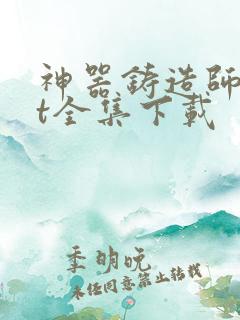 神器铸造师
t全集下载
季明晚
未经同意禁止转载